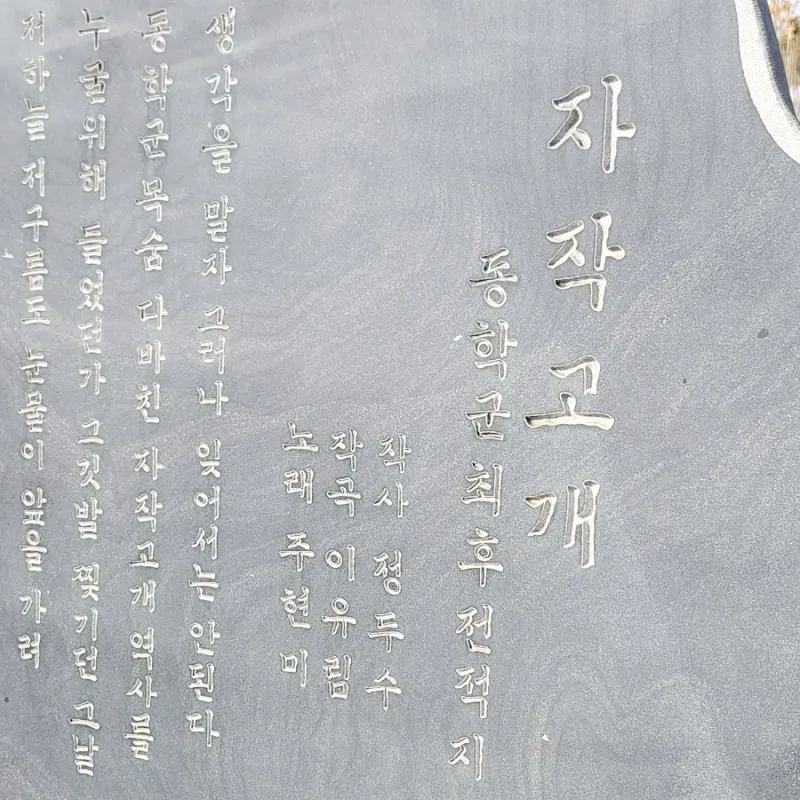 자작고개
동학군최후전적지
작사 정두수
작곡 이유림
노래 주현미
생각을 말자 그러나 잊어서는안된다
동학군목숨 다바친 자작고개역사를
누굴위해 들었던가 그깃발 찢기던 그날
저하늘 저구름도 눈물이 앞을 가려